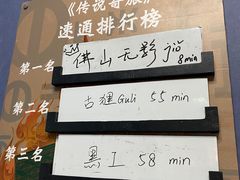 《传说奇旅》
速通排行榜
第一名
佛山无影jio
8min
第二名
古狸Guli 55 min
第三名
黑工 58 min